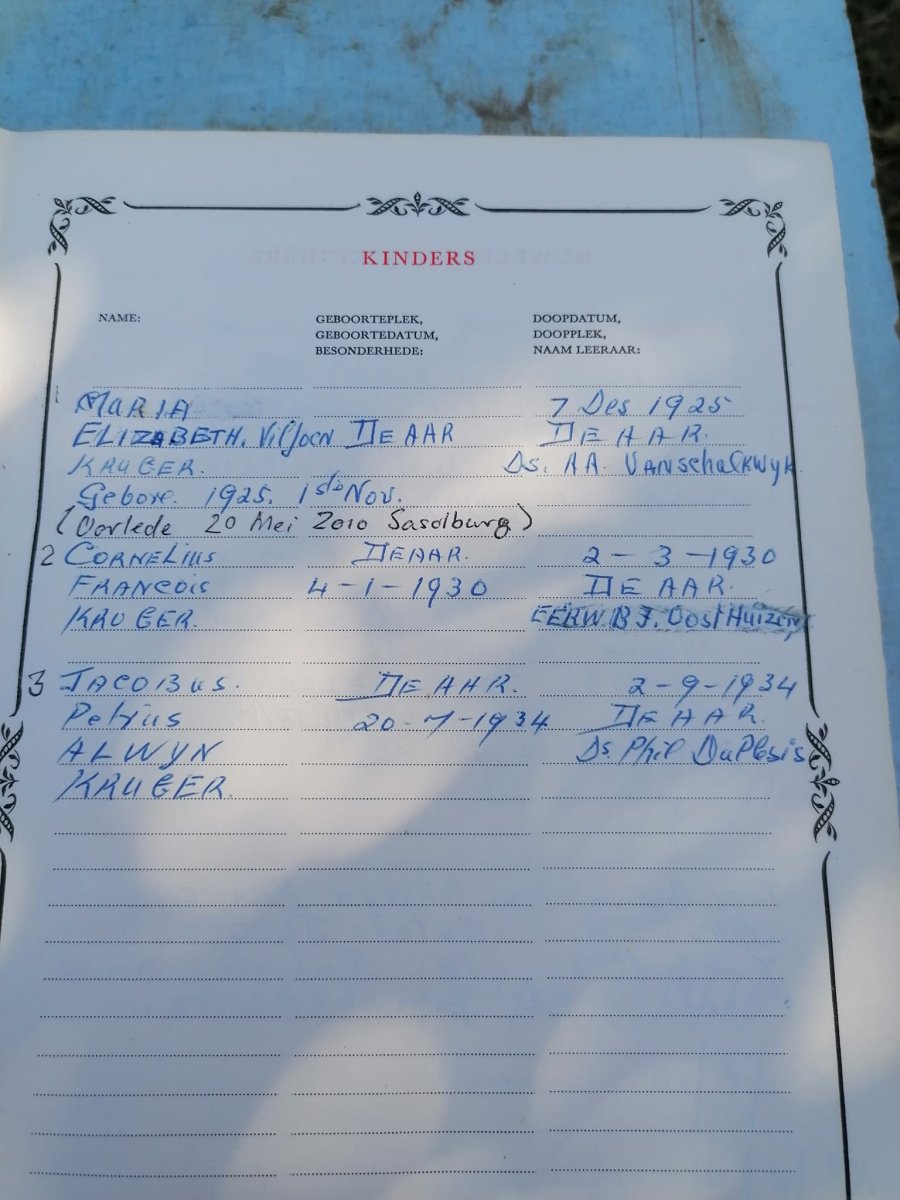 KINDERS
NAME: GEBOORTEPLEK, DOOPDATUM,
GEBOORTEDATUM, DOOPPLEK,
BESONDERHEDE: NAAM LEERAAR:
1 MARIA 7 Des 1925
ELIZABETH. Viljoen DE AAR DE AAR.
KRUGER. Ds. AA. VANSchalKWyk
Gebore. 1925. 1ste Nov.
(Oorlede 20 Mei 2010 Sasolburg)
2 CORNELIUS DE AAR. 2-3-1930
FRANCOIS 4-1-1930 DE AAR.
KRUGER. EERW B J. OostHuizen
3 JACOBUS. DE AAR. 2-9-1934
Petrus 20-7-1934 DE AAR.
ALWYN Ds. Phil DuPlesis
KRUGER.